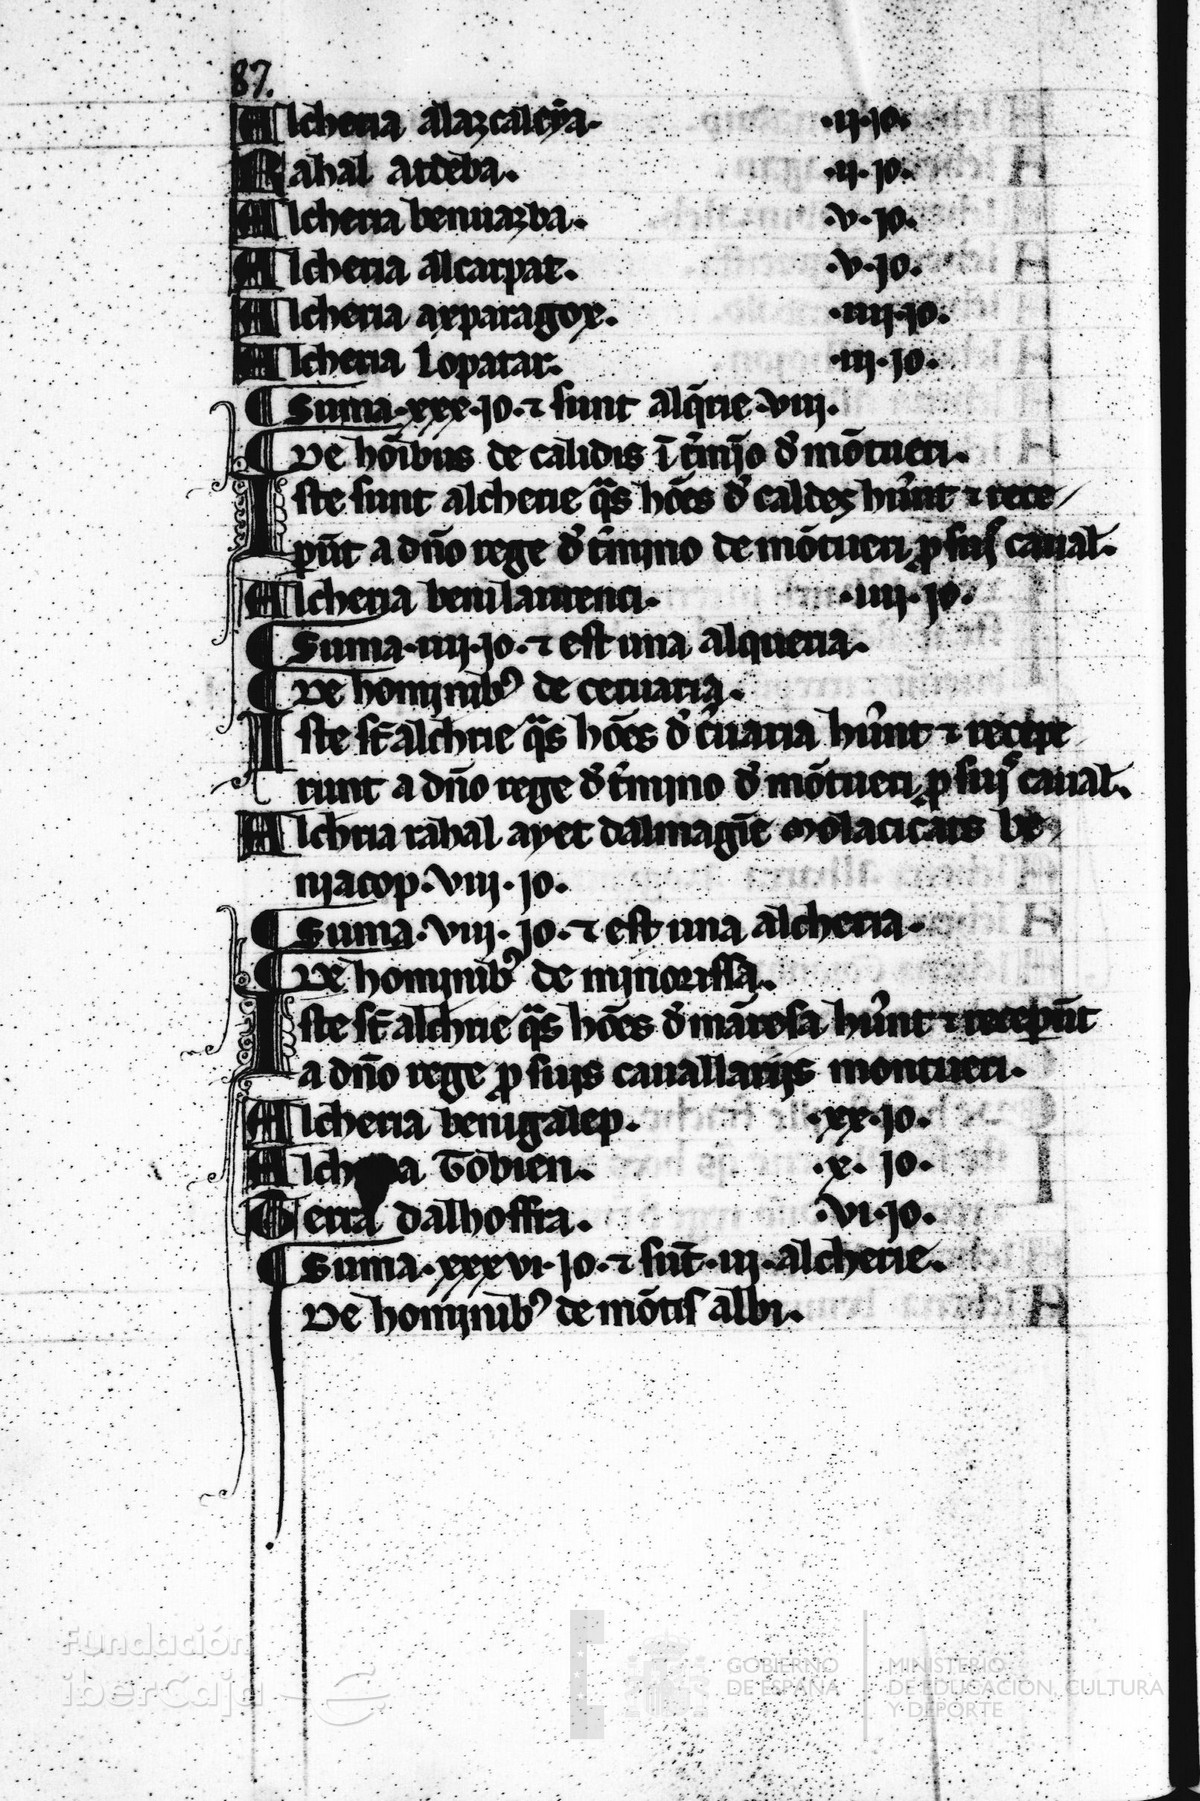 87.
Alcheria alazcaleya. .ii.jo.
Rahal ardeba. .ii.jo.
Alcheria benuazba. .v.jo.
Alcheria alcarpat. .v.jo.
Alcheria axparagox. .iiii.jo.
Alcheria Lopatar. .iii.jo.
¶ Suma.xxx.jo.⁊ sunt alq̃rie.viii.
¶ De hõibus de calidis ĩ t̃mĩo d̓ mõtueri.
Iste sunt alcherie q̃s hões d̓ caldes hũnt ⁊ rece
pũt a dño rege d̓ t̃mino de mõtueri ꝓ suis caual.
Alcheria benilaurenci. .iiii.jo.
¶ Suma.iiii.jo.⁊ est una alqueria.
¶ De hominib⁹ de ceruaria.
Iste st̃ alchrie q̃s hões d̓ c̓uaria hũnt ⁊ recepe
runt a dño rege d̓ t̃mino d̓ mõtueri ꝓ suis caual.
Alchria rahal ayet dalmagiẽ molacicats be
niacop.viii.jo.
¶ Suma.viii.jo.⁊ est una alcheria.
¶ De hominib⁹ de minorissa.
Iste st̃ alchrie q̃s hões d̓ mãresa hũnt ⁊ recepũt
a dño rege ꝓ suis cauallarijs montueri.
Alcheria benigalep. .xx.jo.
Alch a Tobien. .x. jo.
Terra dalhoffra. .vi.jo.
¶ Suma.xxxvi.jo.⁊ sũt.iii.alcherie.
De hominib⁹ de mõtis albi.
Fundación
iberCaja
GOBIERNO MINISTERIO
DE ESPAÑA DE EDUCACIÓN, CULTURA
Y DEPORTE